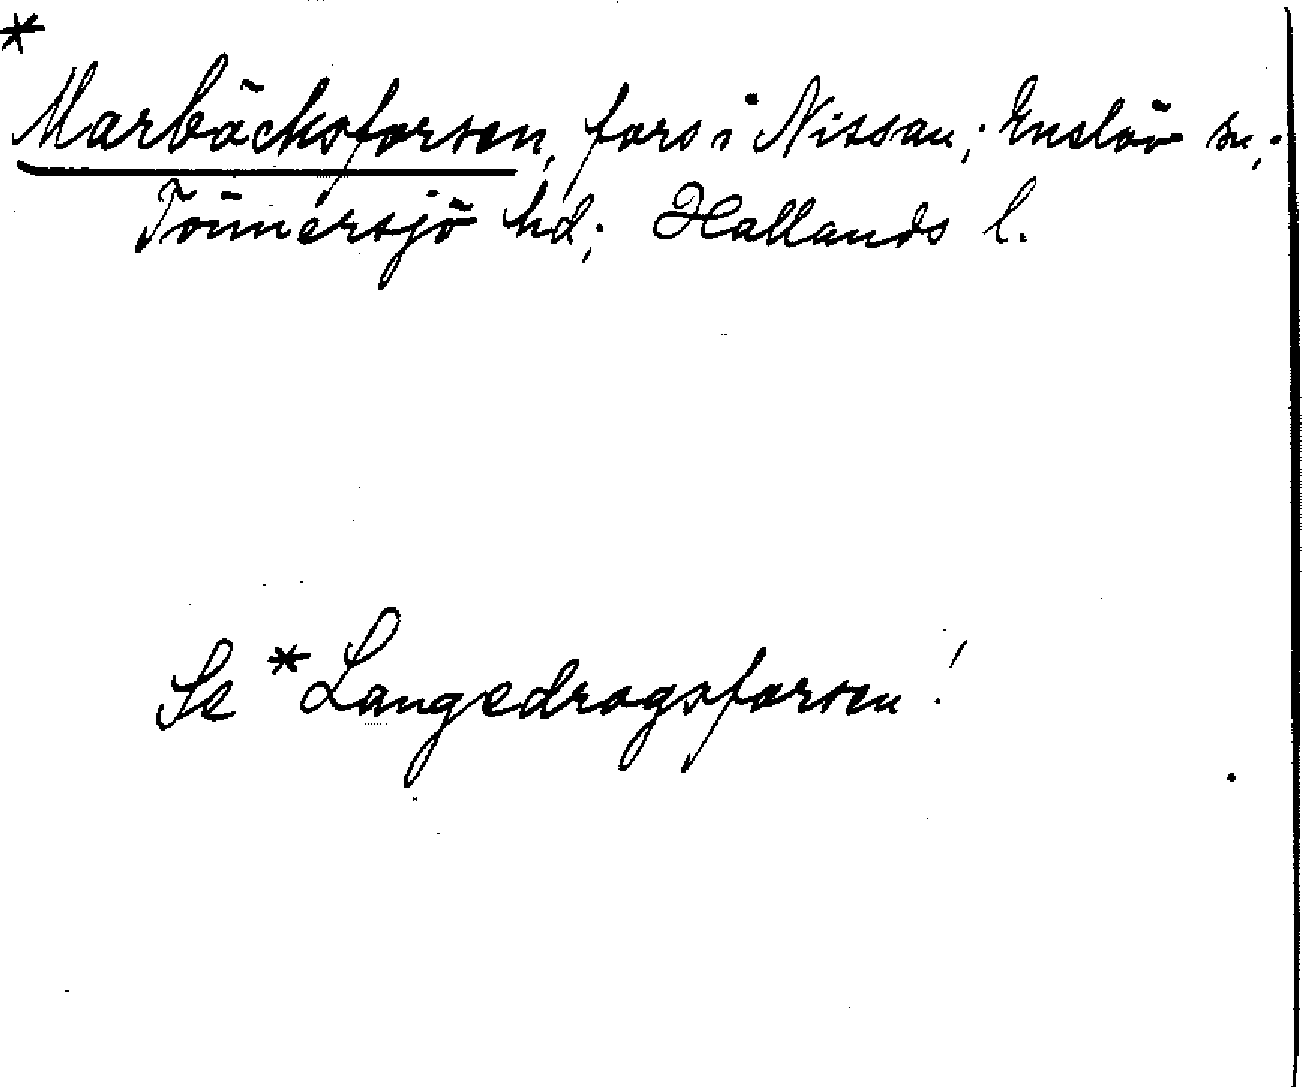 * Marbäcksforsen, fors i Nissan; Enslöv sn;
Tönnersjö hd; Hallands l.
Se * Langedragsforsen!